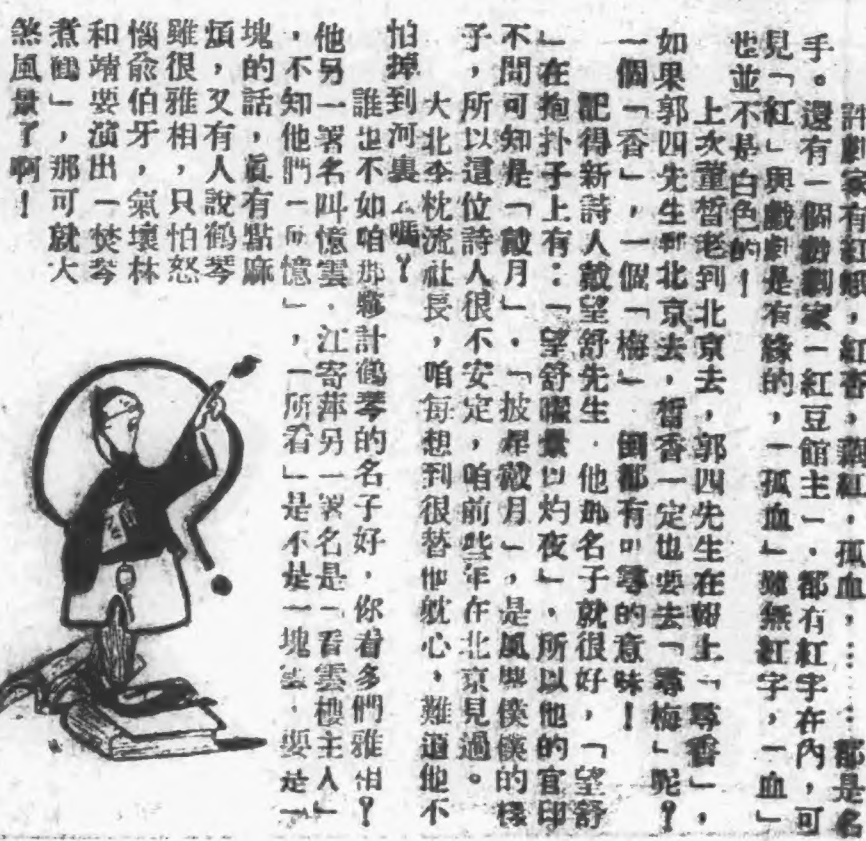 評劇家有紅娘，紅杏，飄紅，孤血，……都是名
手。還有一個戲劇家「紅豆館主」，都有紅字在內，可
見「紅」與戲劇是有緣的，「孤血」雖無紅字，「血」
也並不是白色的！
上次董皙老到北京去，郭四先生在報上「尋香」，
如果郭四先生到北京去，皙香一定也要去「尋梅」呢？
一個「香」，一個「梅」倒都有可尋的意味！
記得新詩人戴望舒先生，他那名子就很好，「望舒
」在抱扑子上有：「望舒曜景以灼夜」，所以他的官印
不問可知是「戴月」，「披星戴月」，是風塵僕僕的樣
子，所以這位詩人很不安定，咱前些年在北京見過。
大北季枕流社長，咱每想到很替他躭心，難道他不
怕掉到河裏去嗎？
誰也不如咱那夥計鶴琴的名子好，你看多們雅相？
他另一署名叫憶雲，江寄萍另一署名是「看雲樓主人」
，不知他們「所憶」，「所看」是不是一塊雲，要是一
塊的話，眞有點麻
煩，又有人說鶴琴
雖很雅相，只怕怒
惱兪伯牙，氣壞林
和靖要演出「焚琴
煮鶴」，那可就大
煞風景了啊！